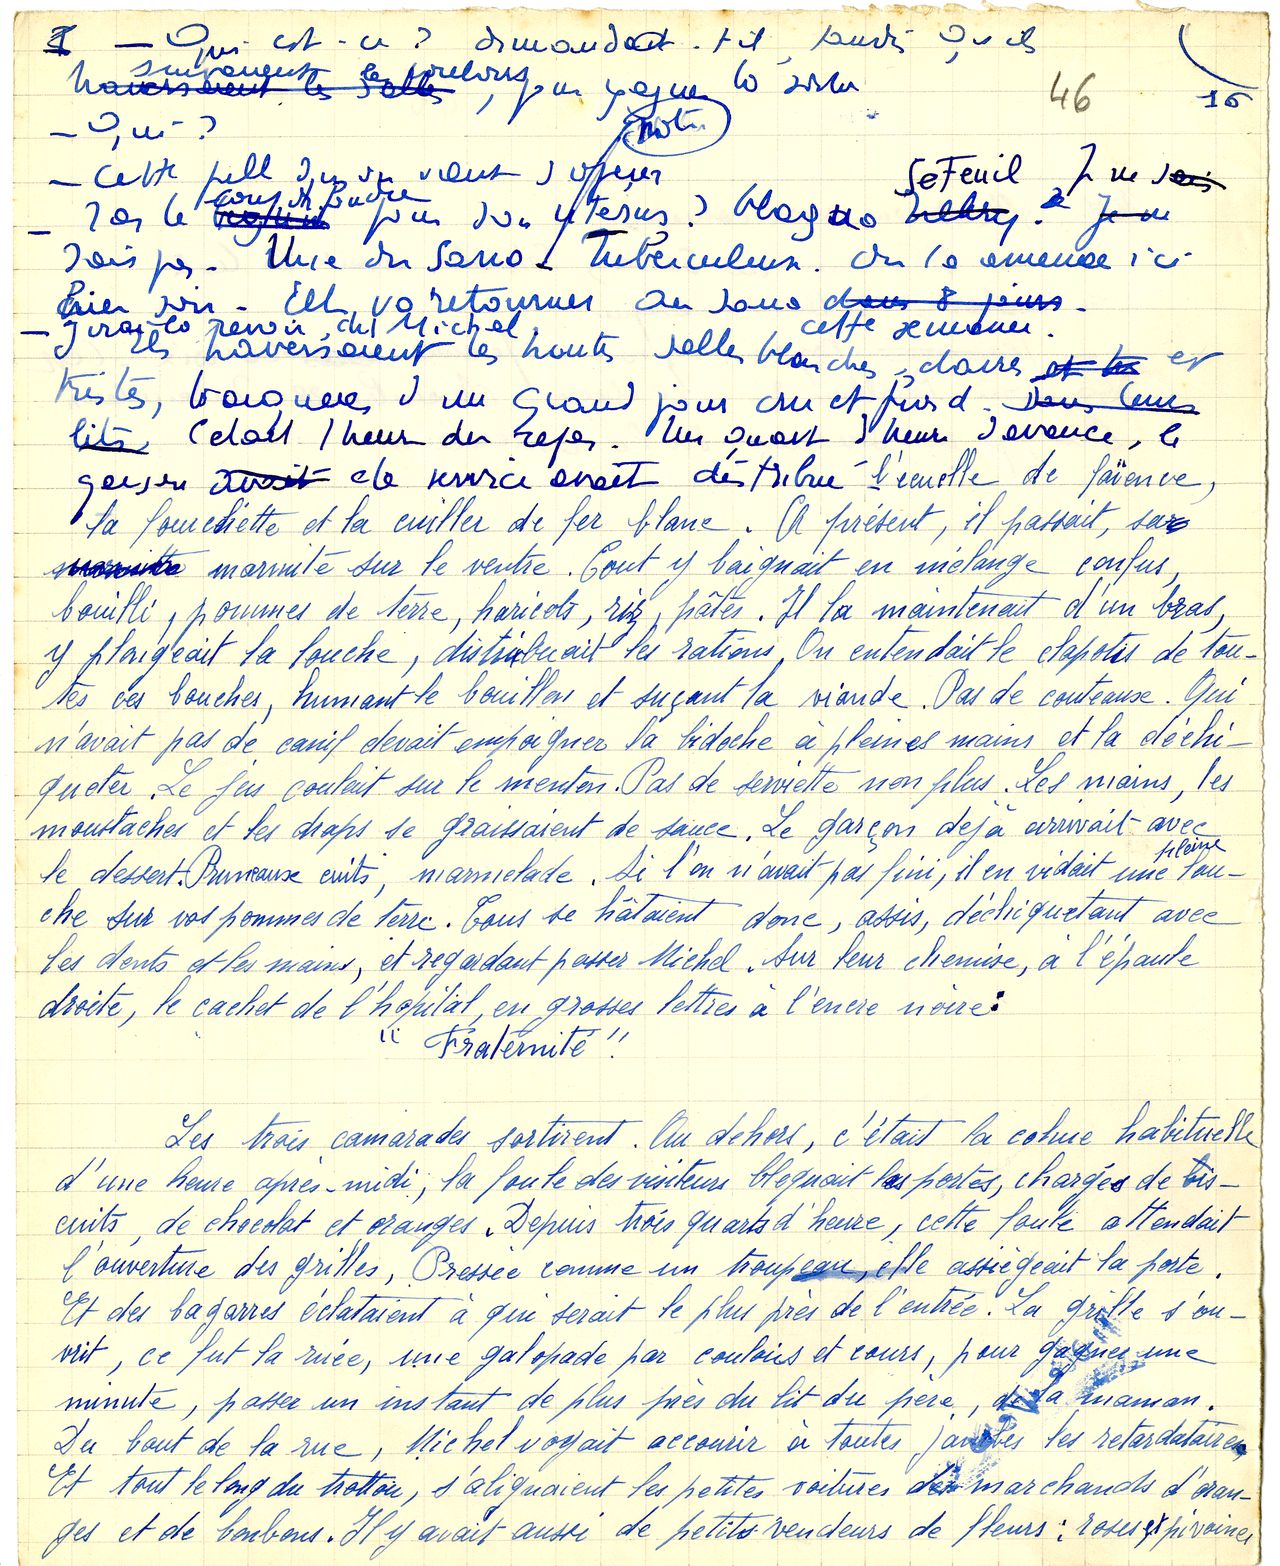 — Qui est-ce ? demandait-il, tandis qu'ils
suivaient les couloirs
traversaient les salles, pour gagner la sortie
46
16
— Qui ?
— Cette petite qu'on vient d'opérer
Seteuil Je ne sais
coup de foudre
— T'as le béguin pour son utérus ? blagua Je ne
sais pas. Une du Sana. Tuberculeuse. On l'a amenée ici
hier soir. Elle va retourner au sana dans 8 jours.
cette semaine.
— J'irai la revoir, dit Michel.
Ils traversaient les hautes salles blanches, claires et les et
tristes, baignées d'un grand jour cru et froid. Dans leurs
lits, C'était l'heure du repas. Un quart d'heure d'avance, le
garçon avait de service avait distribué l'écuelle de faïence,
la fourchette et la cuiller de fer blanc. A présent, il passait, sa
marmite marmite sur le ventre. Tout y baignait en mélange confus,
bouilli, pommes de terre, haricots, riz, pâtes. Il la maintenait d'un bras,
y plongeait la louche, distribuait les rations. On entendait le clapotis de tou-
tes ces bouches, humant le bouillon et suçant la viande. Pas de couteaux. Qui
n'avait pas de canif devait empoigner la bidoche à pleines mains et la déchi-
queter. Le jus coulait sur le menton. Pas de serviette non plus. Les mains, les
moustaches et les draps se graissaient de sauce. Le garçon déjà arrivait avec
le dessert. Pruneaux cuits, marmelade. Si l'on n'avait pas fini, il en vidait une pleine lou-
che sur vos pommes de terre. Tous se hâtaient donc, assis, déchiquetant avec
les dents et les mains, et regardant passer Michel. Sur leur chemise, à l'épaule
droite, le cachet de l'hôpital, en grosses lettres à l'encre noire :
" Fraternité "!
Les trois camarades sortirent. Au dehors, c'était la cohue habituelle
d'une heure après-midi, la foule des visiteurs bloquait les portes, chargés de bis-
cuits, de chocolat et oranges. Depuis trois quarts d'heure, cette foule attendait
l'ouverture des grilles, Pressée comme un troupeau, elle assiégeait la porte.
Et des bagarres éclataient à qui serait le plus près de l'entrée. La grille s'ou-
vrit, ce fut la ruée, une galopade par couloirs et cours, pour gagner une
minute, passer un instant de plus près du lit du père, de la maman.
Du bout de la rue, Michel voyait accourir à toutes jambes les retardataires.
Et tout le long du trottoir, s'alignaient les petites voitures des marchands d'oran-
ges et de bonbons. Il y avait aussi de petits vendeurs de fleurs : roses et pivoines